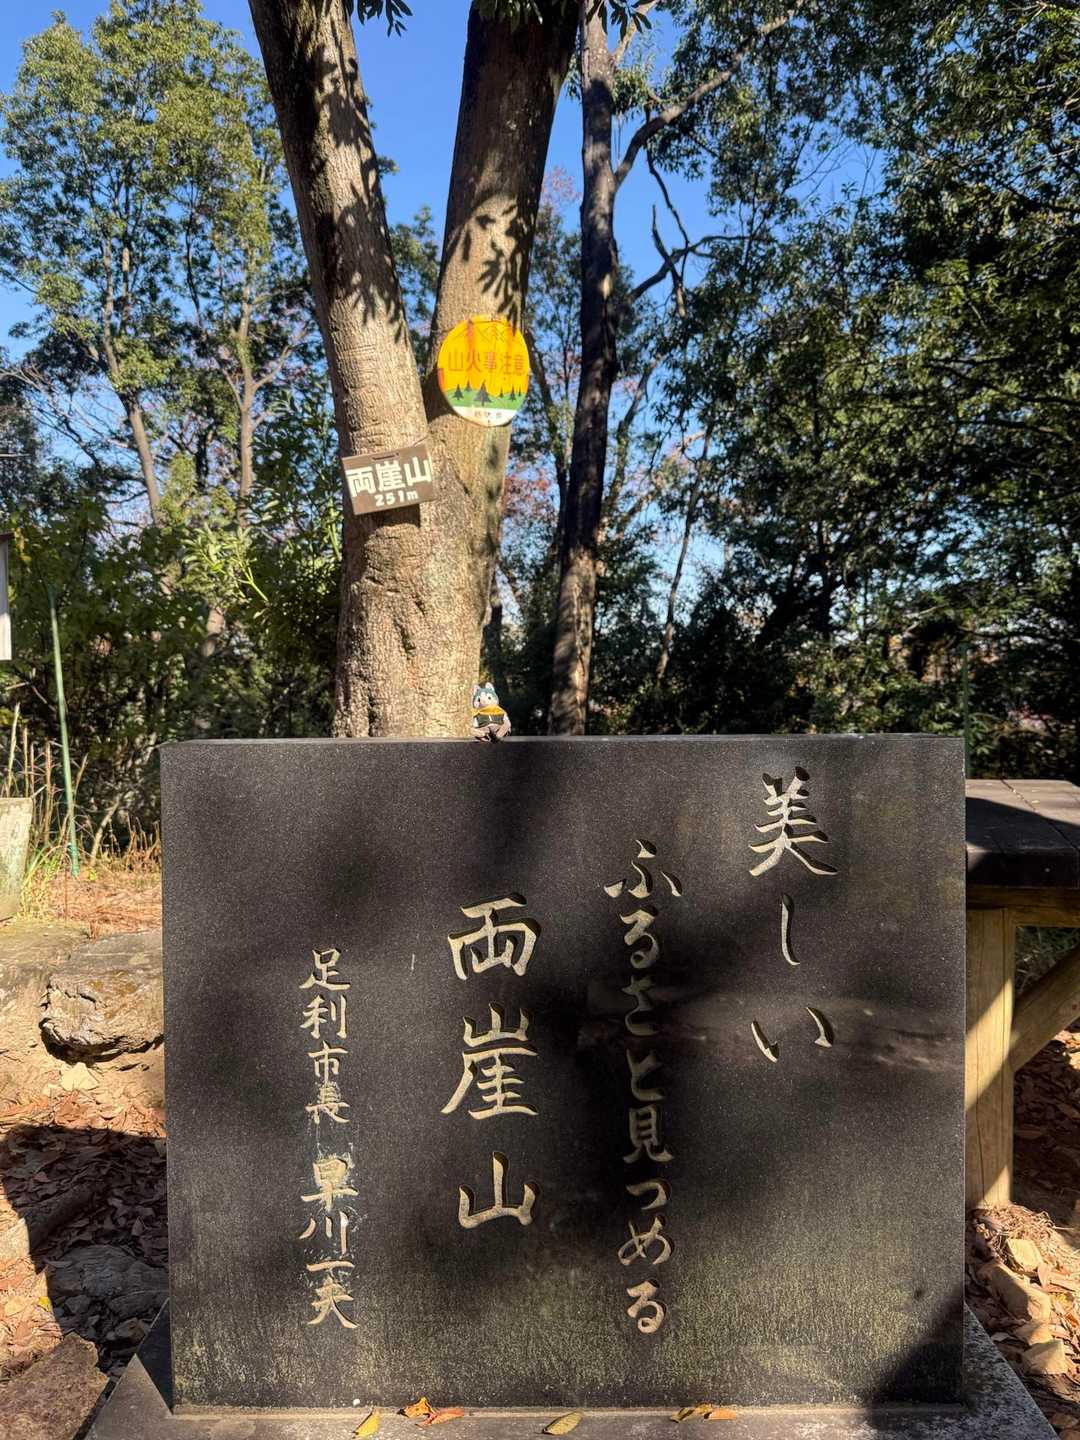 山火事注意
両崖山
251m
美しい
ふるさと見つめる
両崖山
足利市長 早川一夫